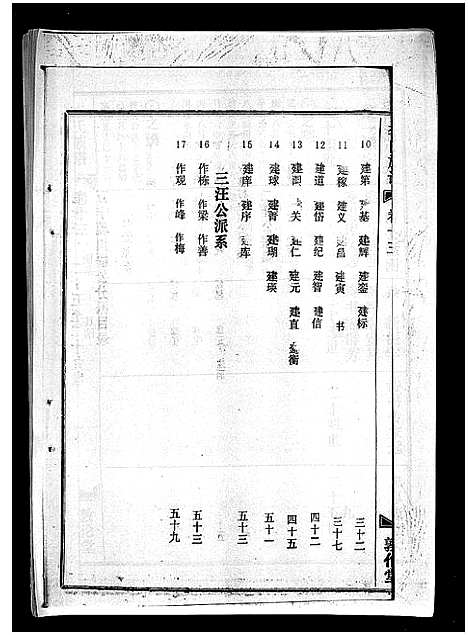 10 建第 建基 建辉 建銮 建标 三十二
11 建稼 建义 建昌 建寅 书 三十七
12 建道 建偣 建纪 建智 建信 四十二
13 建 关 建仁 建元 建直 建衡 四十五
14 建球 建菁 建瑚 建瑛 五十一
15 建庠 建序 建库 五十三
三汪公派系
16 作栋 作梁 作善 五十三
17 作观 作峰 作梅 五十九
卷十三